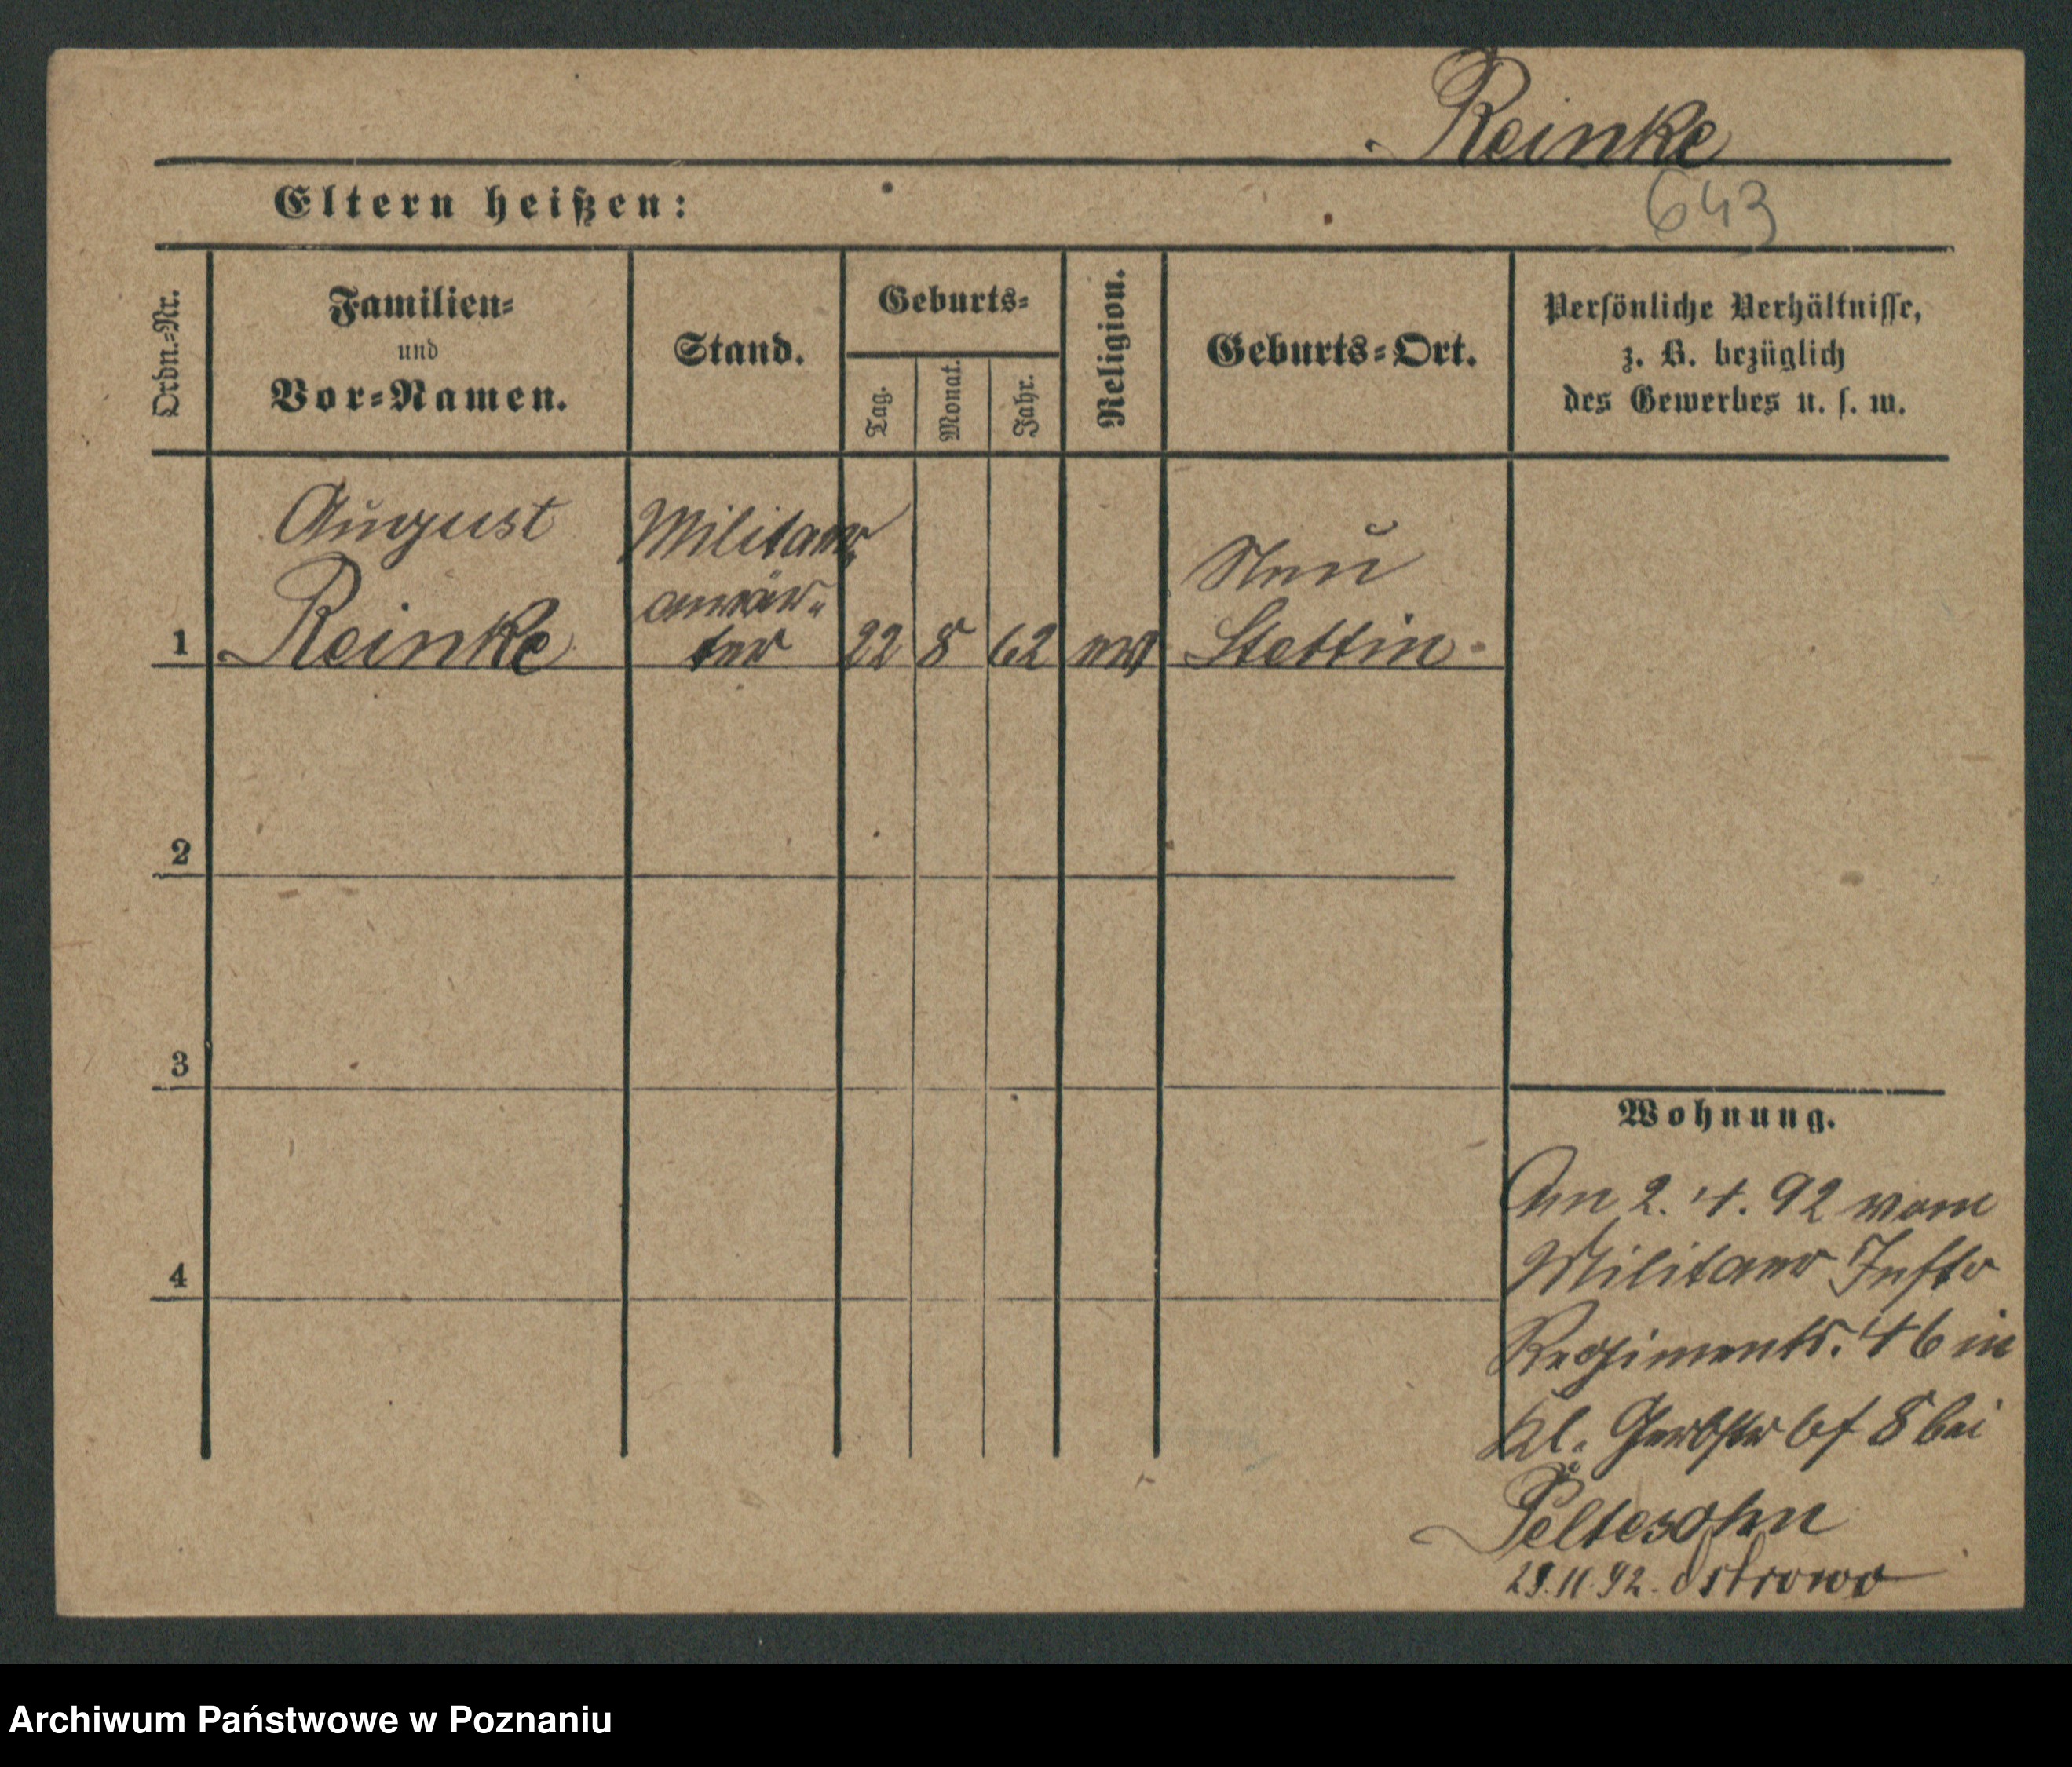 Reinke
Eltern heißen:
643
Ordn.-Nr.
Familien-
und
Vor-Namen.
Stand.
Geburts-
Tag.
Monat.
Jahr.
Religion.
Geburts-Ort.
Persönliche Verhältnisse,
z. B. bezüglich
des Gewerbes u. s. w.
August
Reinke
Militair
anwär-
ter
1
22 8 62 ev
Neu
Stettin
2
3
4
Wohnung.
Am 2. 4. 92 vom
Militair Inftr
Regiments. 46 in
Kl. Gerbstr 8 bei
Peltesohn
29.11.92. Ostrowo
Archiwum Państwowe w Poznaniu